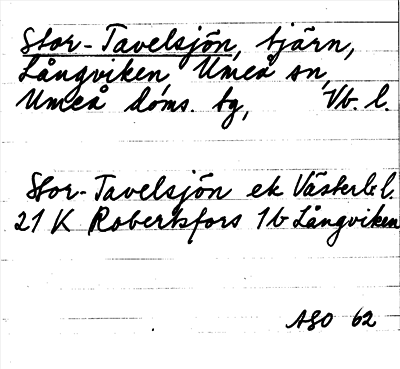 Stor-Tavelsjön, tjärn,
Långviken Umeå sn,
Umeå doms. tg, Vb. l.
Stor-Tavelsjön ek Västerb l.
21 K Robertsfors 1b Långviken
ASO 62